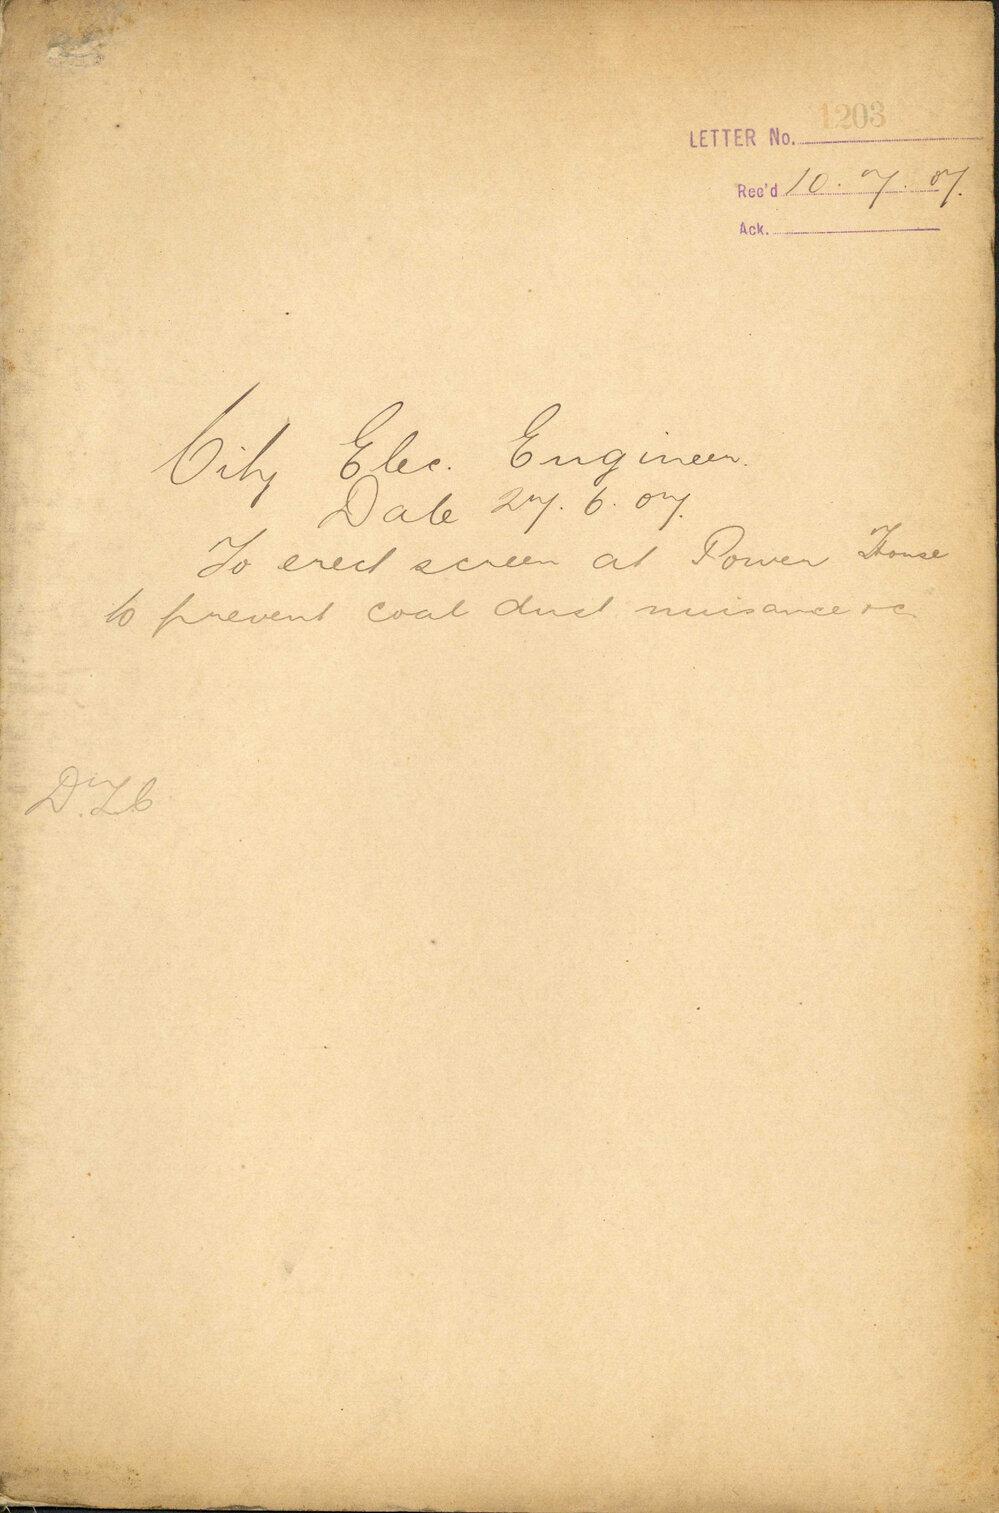 1203
LETTER No.
Rec'd 10. 7. 07.
Ack.
City Elec. Engineer.
Date 27. 6. 07.
To erect screen at Power House
to prevent coal dust nuisance &c.